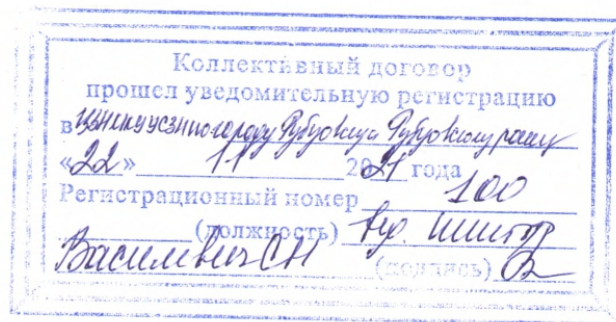 Коллективный договор
прошел уведомительную регистрацию
в городу Рубцовску и Рубцовскому району
«22» 11 2021 года
Регистрационный номер 100
(должность) вед. инспектор
Василевич СН (подпись)